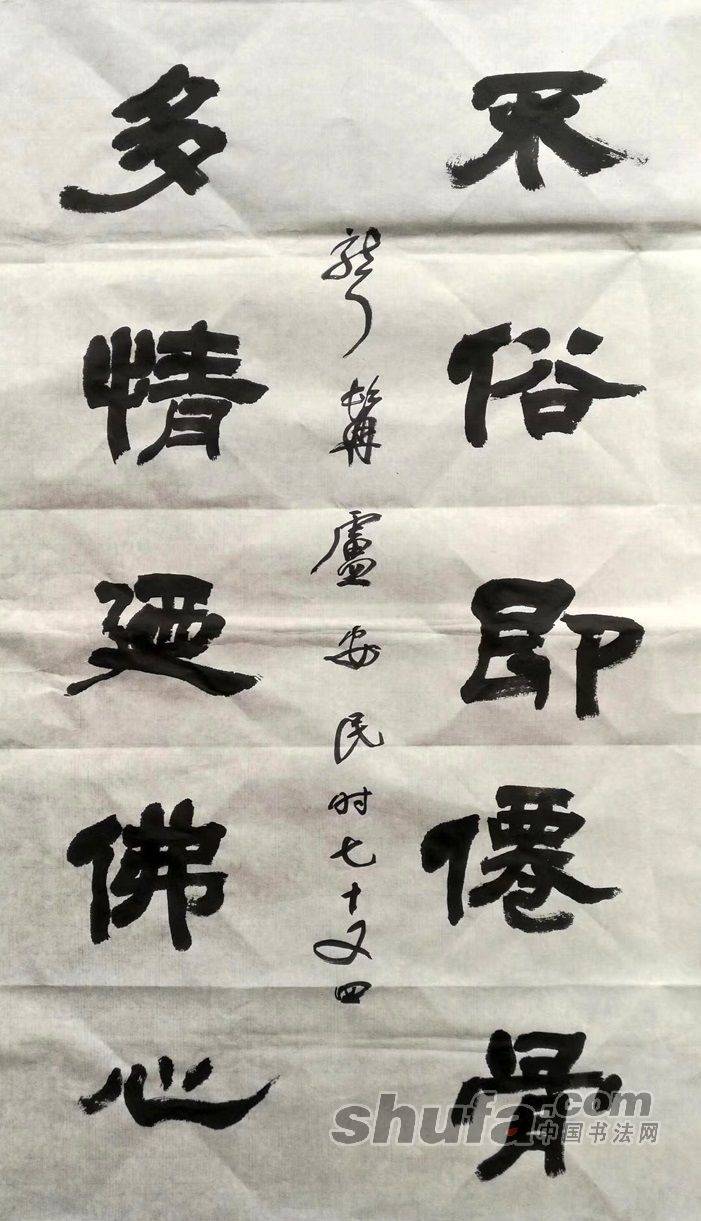 不俗即僊骨
多情廼佛心
髯盧安民时七十又四
shufa.com
中国书法网